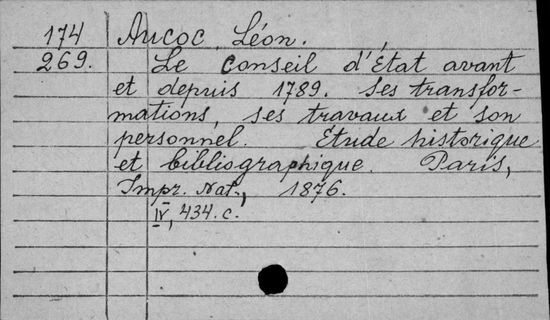 174 Aucoc, Léon.
269. Le conseil d'État avant
et depuis 1789. Ses transfor-
mations, ses travaux et son
personnel. Etude historique
et bibliographique. Paris,
Impr. Nat., 1876.
IV, 434. c.